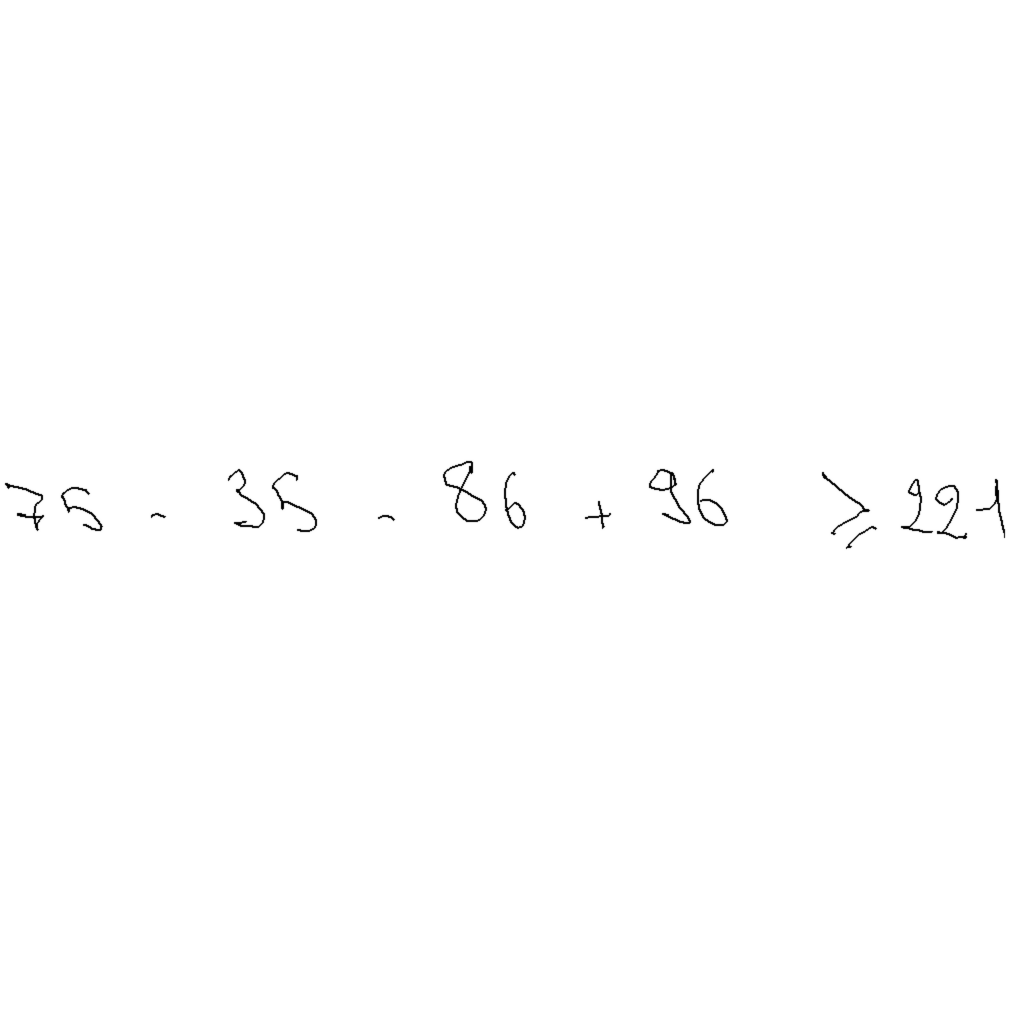 75 - 35 - 86 + 96 ≥ 221